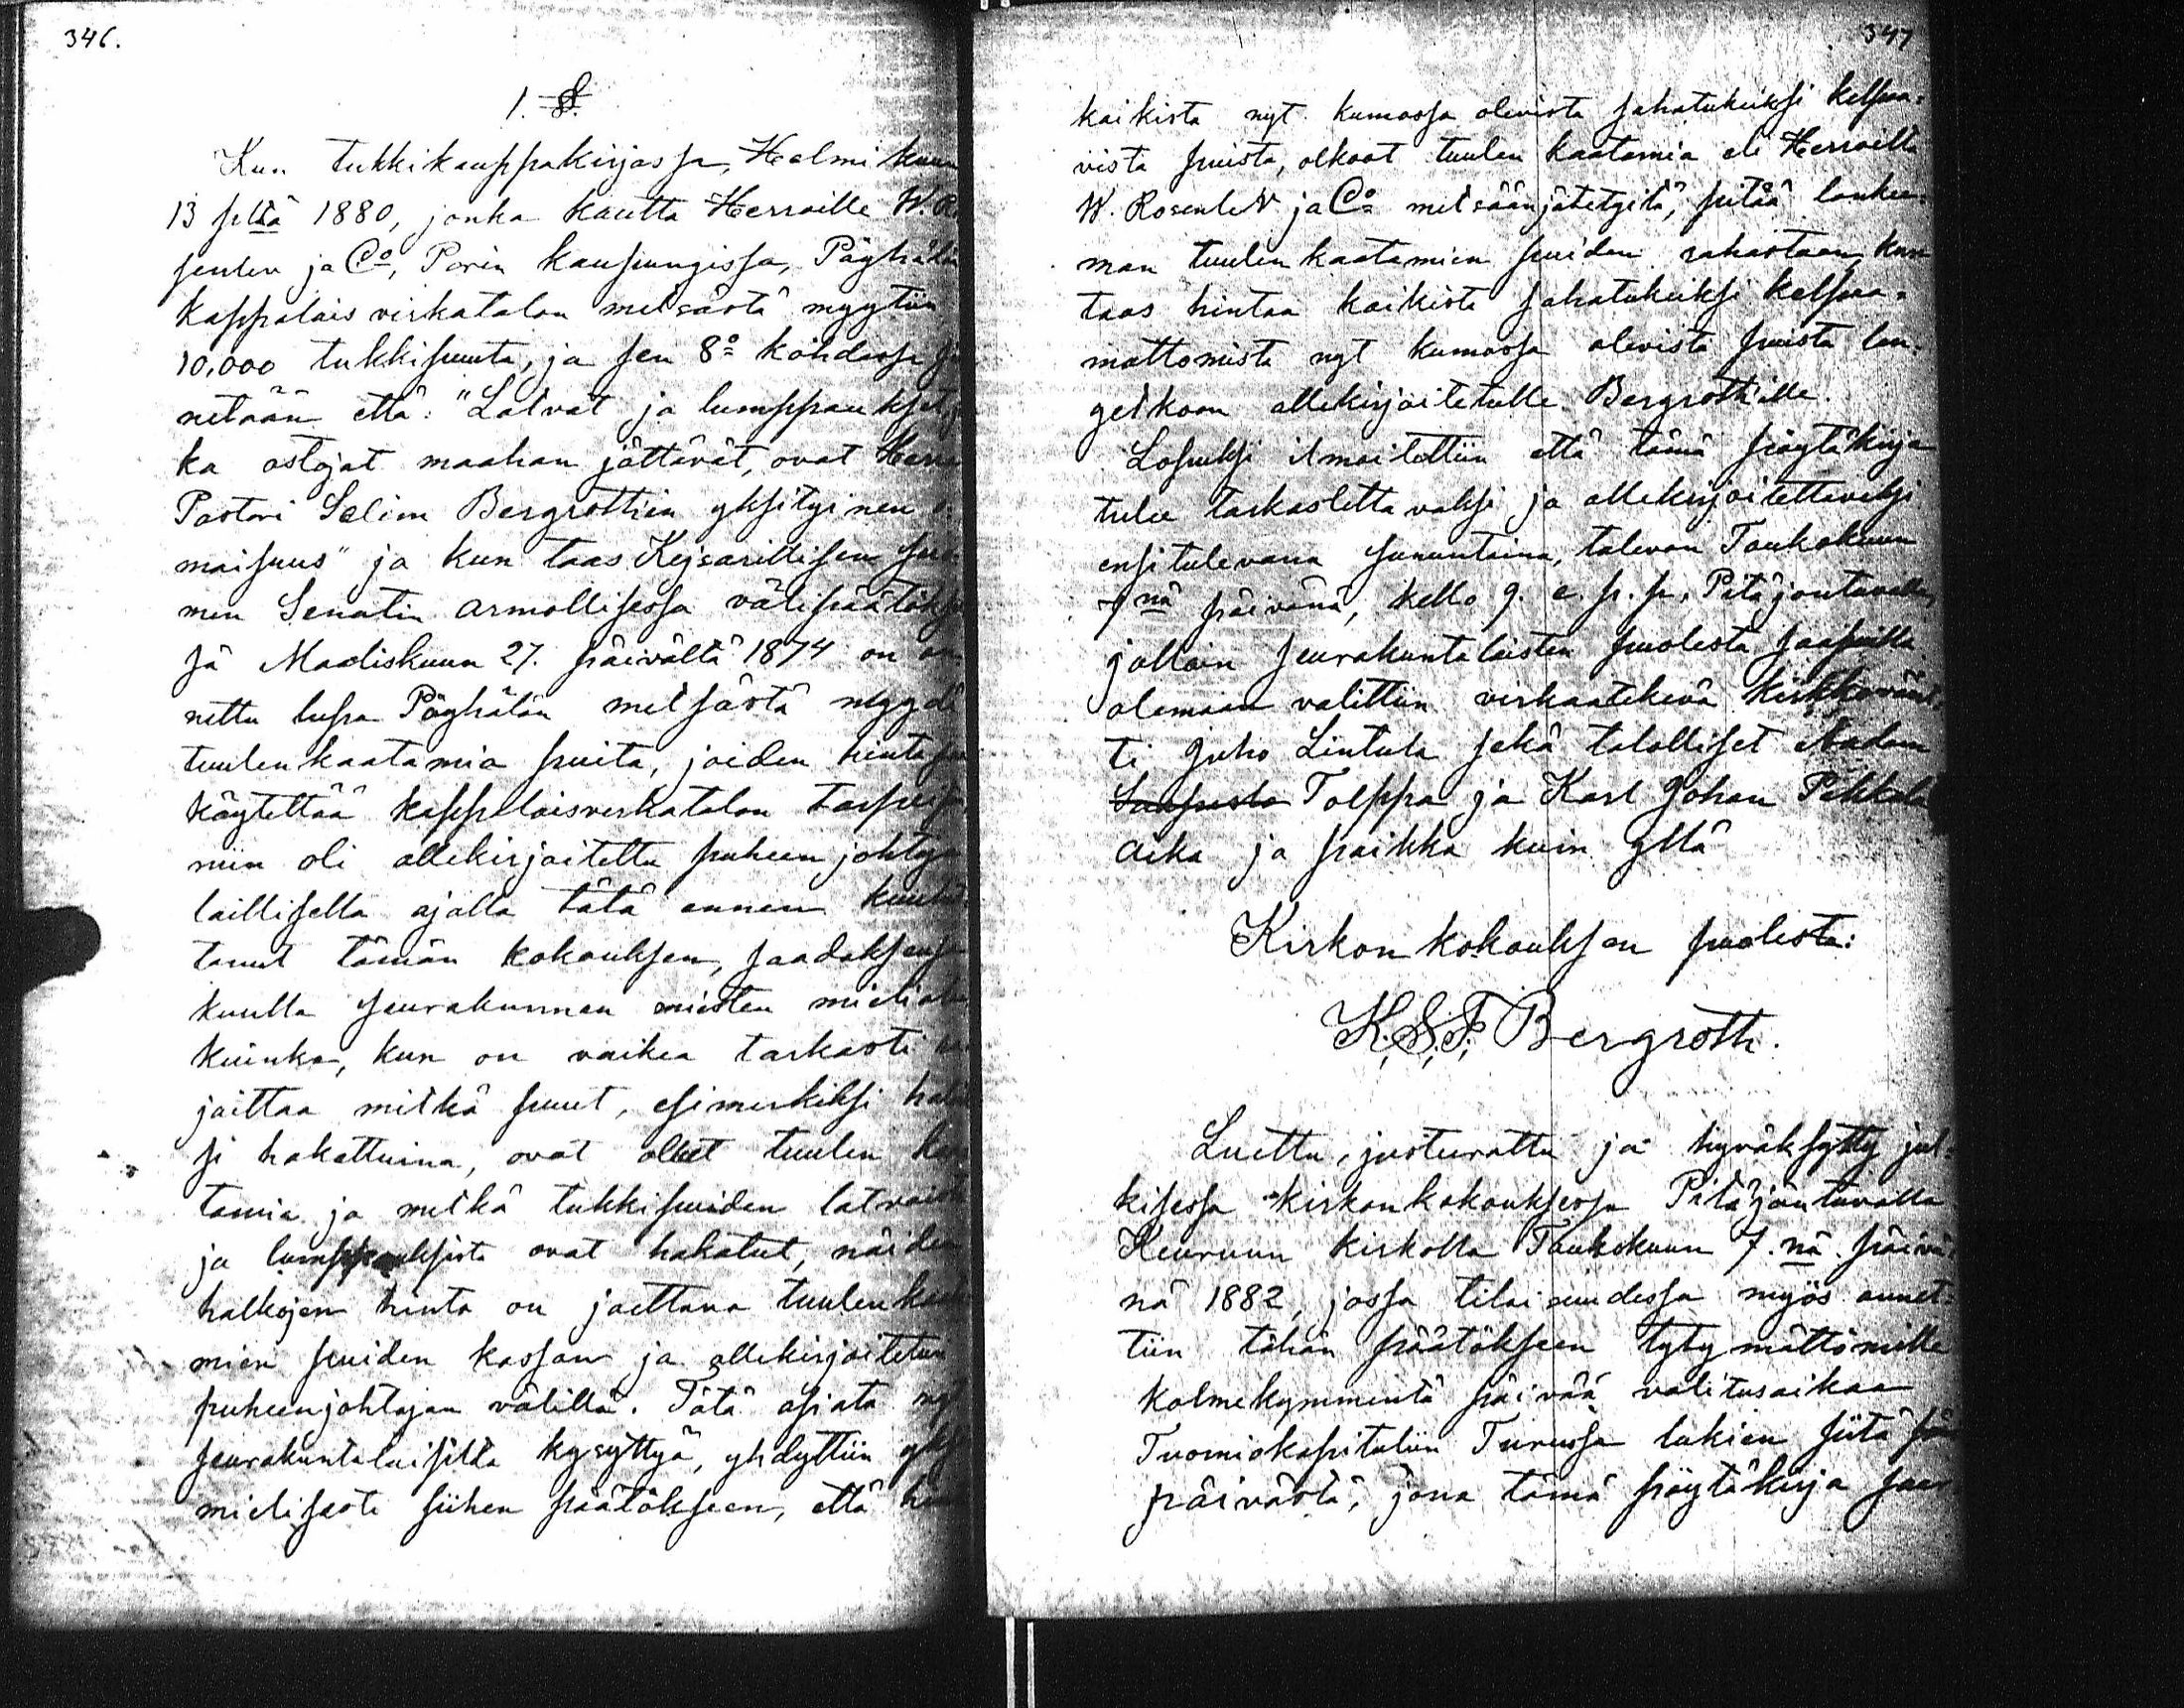 346.
1. §.
Kun tukkikauppakirjassa, Helmikuun
13 p:ltä 1880, jonka kautta Herroille W. Ro
senlew ja C:o, Porin kaupungissa, Pöyhölän
Kappalais virkatalon metsästä myytiin
10,000 tukkipuuta, ja sen 8:o kohdassa
netään että: "Latvat ja lumppaukset,
ka ostajat maahan jättävät, ovat Herra
Pastori Selim Bergrothin yksityinen o
maisuus" ja kun taas Kejsarillisen Suo
men Senatin armollisessa välipäätökses
sä Maaliskuun 27. päivältä 1874 on an
nettu lupa Pöyhölän metsästä myydä
tuulenkaatamia puita, joiden hinta
käytettää kappalaisvirkatalon tarpeisi
niin oli allekirjoitettu puheenjohtaja
laillisella ajalla tätä ennen kuulu
tanut tämän kokouksen, saadaksensa
kuulla seurakunnan miesten mieliala
kuinka, kun on vaikea tarkasti
joittaa mitkä puut, esimerkiksi halo
si hakattuina, ovat olleet tuulen kaa
tamia ja mitkä tukkipuiden latvoista
ja lumppauksista ovat hakatut, näiden
halkojen hinta on jaettava tuulenkaata
mien puiden kassan ja allekirjoitetun
puheenjohtajan välillä. Tätä asiata nyt
seurakuntalaisilta kysyttyä, yhdyttiin yksi
mielisesti siihen päätökseen, että
347
kaikista nyt kumossa olevista sahatukeiksi kelpaa=
vista puista, olkoot tuulen kaatamia eli Herroilta
W. Rosenlew ja C:o metsään jätetyitä, pitää lankee=
man tuulen kaatamien puiden rahastoon, kun
taas hintaa kaikista sahatukeiksi kelpaa=
mattomista nyt kumossa olevista puista lan=
getkoon allekirjoitetulle Bergrothille.
Lopuksi ilmoitettiin että tämä pöytäkirja
tulee tarkastettavaksi ja allekirjoitettavaksi
ensitulevana sununtaina, tulevan Toukokuun
7 nä päivänä, kello 9. e. p. p. Pitäjäntuvalla,
jolloin seurakuntalaisten puolesta saapuilla
olemaan valittiin virkaatekevä kirkkovärt=
ti Juho Lintula sekä talolliset Aadam
Tolppa ja Karl Johan Pekkola
Aika ja paikka kuin yllä
Kirkonkokouksen puolesta:
K. S. F. Bergroth.
Luettu, justeerattu ja hyväksytty jul=
kisessa kirkonkokouksessa Pitäjäntuvalla
Keuruun kirkolla Toukokuun 7. nä päivä=
nä 1882, jossa tilaisuudessa myös annet=
tiin tähän päätökseen tytymättömille
kolmekymmentä päivää valitusaikaa
Tuomiokapituliin Turussa lukien siitä
päivästä, jona tämä pöytäkirja saa